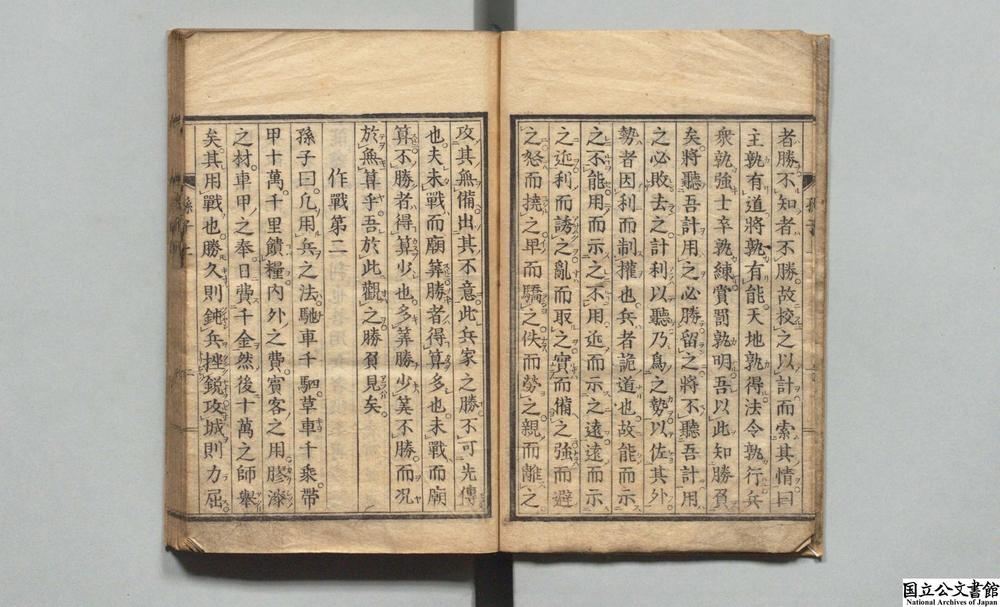 者勝不知者不勝故校之以計而索其情曰
主孰有道將孰有能天地孰得法令孰行兵
衆孰強士卒孰練賞罰孰明吾以此知勝負
矣將聽吾計用之必勝留之將不聽吾計用
之必敗去之計利以聽乃爲之勢以佐其外
勢者因利而制權也兵者詭道也故能而示
之不能用而示之不用近而示之遠遠而示
之近利而誘之亂而取之實而備之強而避
之怒而撓之卑而驕之佚而勞之親而離之
攻其無備出其不意此兵家之勝不可先傳
也夫未戰而廟筭勝者得算多也未戰而廟
算不勝者得算少也多筭勝少筭不勝而况
於無算乎吾於此觀之勝負見矣
作戰第二
孫子曰凡用兵之法馳車千駟草車千乘帶
甲十萬千里饋糧内外之費賓客之用膠漆
之材車甲之奉日費千金然後十萬之師舉
矣其用戰也勝久則鈍兵挫鋭攻城則力屈
孫子
国立公文書館
National Archives of Japan